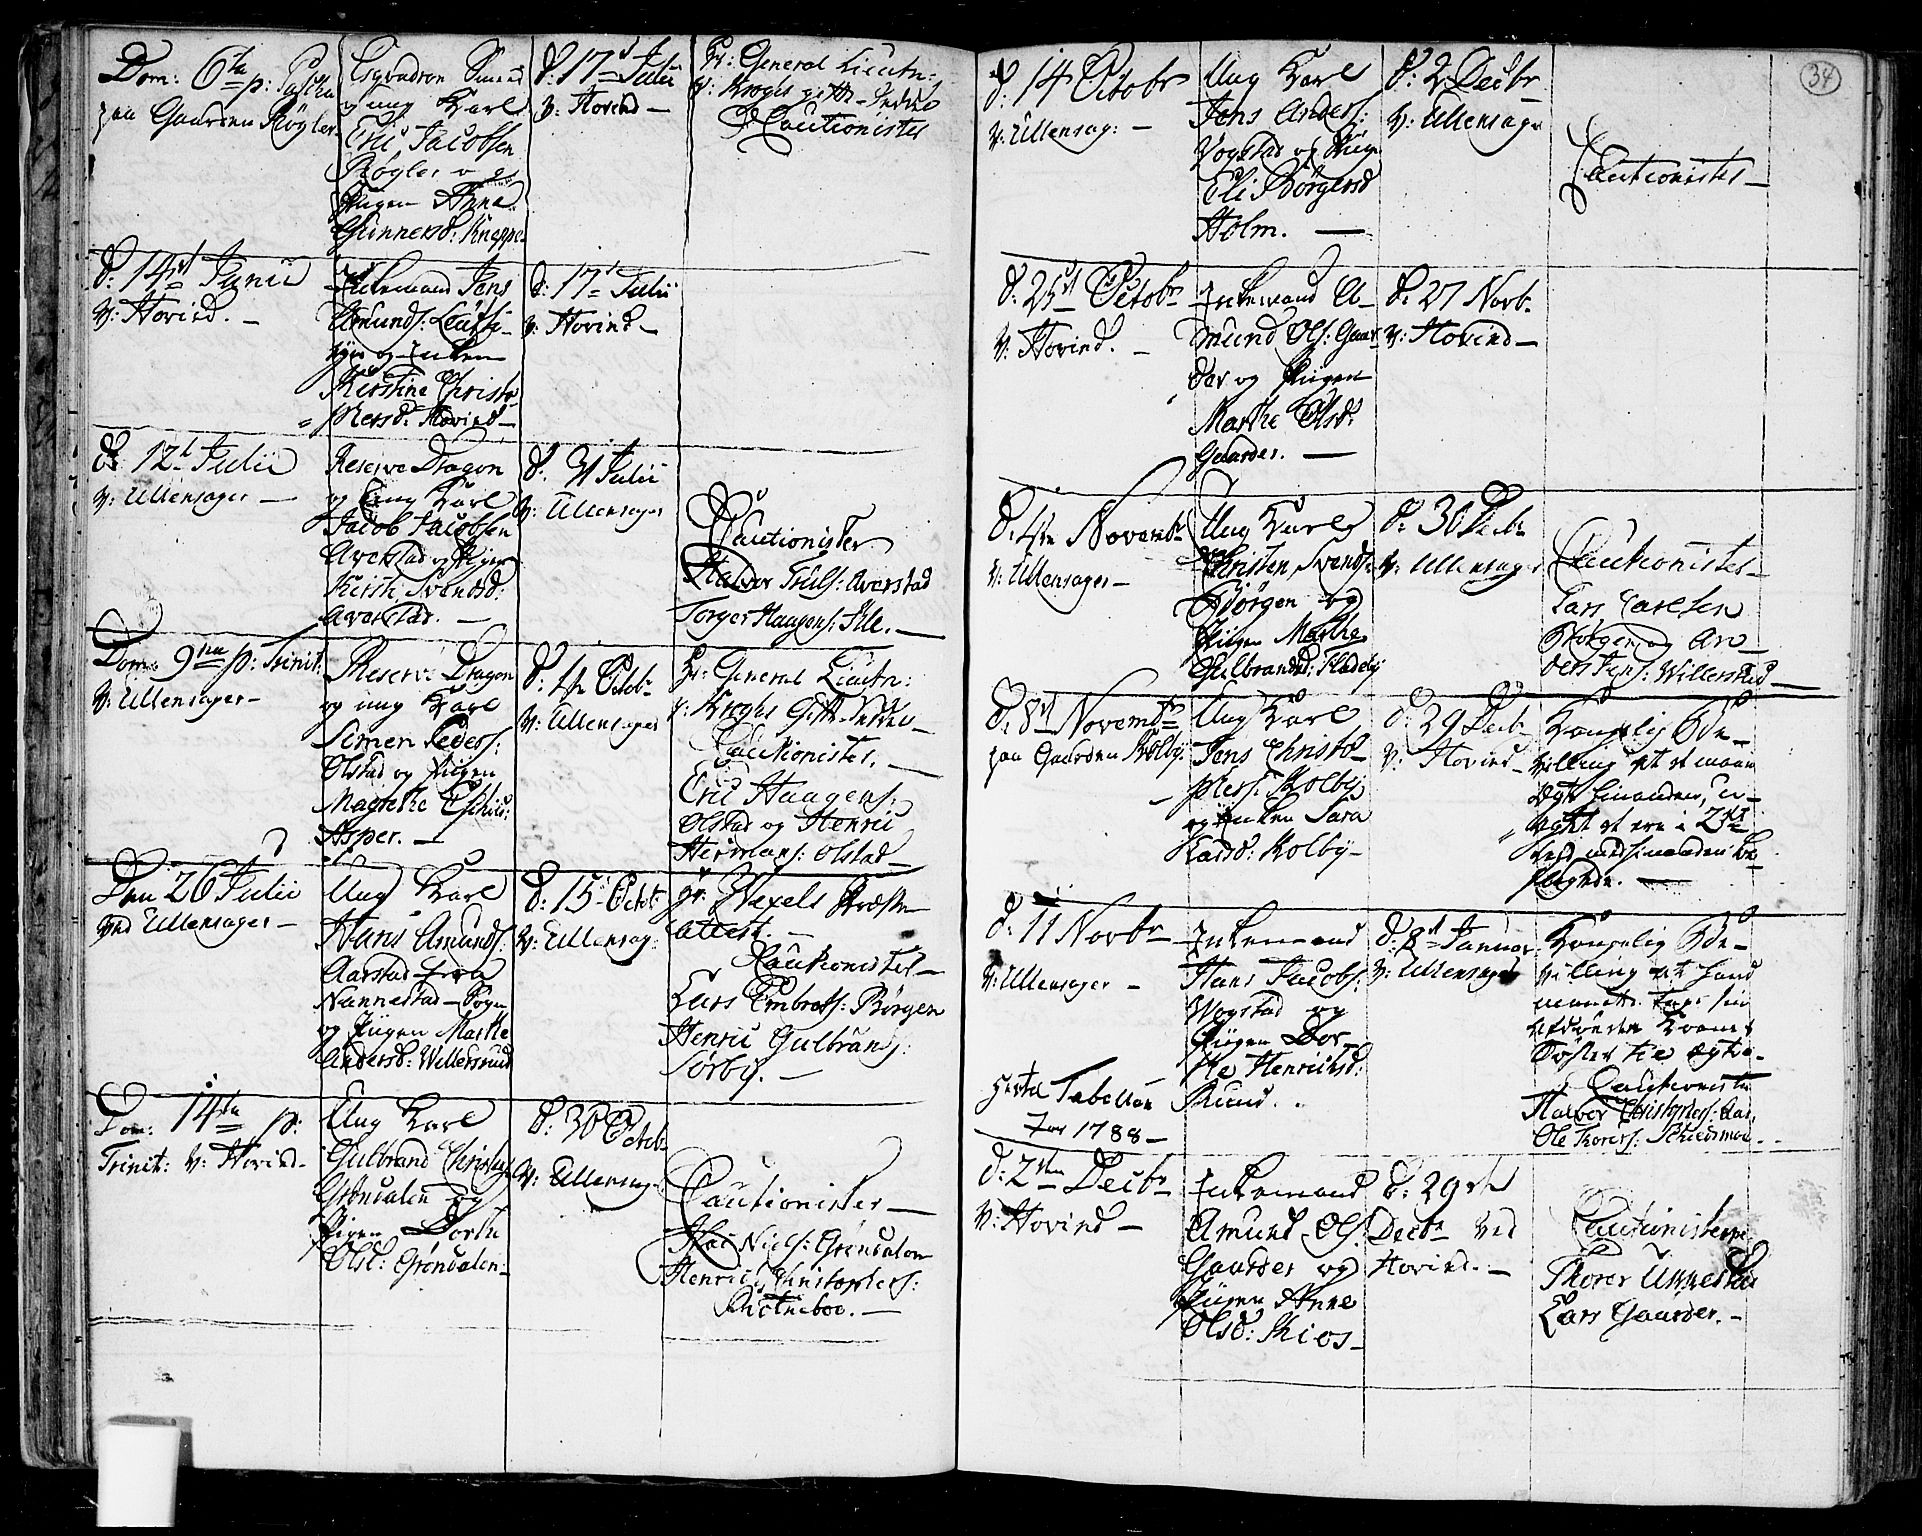 Dom: 6te p: Pascha
paa Gaarden Røgler
Esqvadron Smed
og ung Karl
Eric Jacobsen
Røgler og
Pigen Anna
Gunnersd: Kneppe
d: 17d Julii
v: Hovind —
Hr: General Lieutn:
v: Kroghs
Cautionister
d: 14d Junii
v: Hovind. —
Enkemand Jens
Amunds:
og Enken
Kirstine Christo
phersd: Hovind —
d: 17d Julii
v: Hovind —
d: 12t Julii
v: Ullensager —
Reserve Dragon
og Ung Karl
Jacob Jacobsen
Averstad og Pigen
Kirsti Svendsd:
Averstad. —
d: 31 Julii
v: Ullensager
Cautionister
Halvor Truls: Averstad
Torger Haagens: Ille. —
Dom: 9na p: Trinit:
v: Ullensager —
Reserve Dragon
og ung Karl
Simen Peders:
Olstad og Pigen
Magrethe Eschild:
Asper. —
d: 1ste Octobr
v: Ullensager
Hr: General Lieutn:
v: Kroghs
Cautionister. —
Eric Haagens:
Olstad og Henric
Hermans: Olstad —
Den 26 Julii
ved Ullensager —
Ung Karl
Hans Amunds:
Aarstad fra
Nannestad Sogn
og Pigen Marthe
Andersd: Willersrud
d: 15 Octob:
v: Ullensag:
Hr: Wexels Præste
attest. —
Cautionister —
Lars Embrets: Børgen
Henric Gulbrands:
Sørby. —
Dom: 14ta p:
Trinit: v: Hovind —
Ung Karl
Gulbrand Christophs
Grøndalen og
Pigen Dorthe
Olsd: Grøndalen —
d: 30 Octob:
v: Ullensag:
Cautionister —
Niels: Grøndalen
Henric Christophers:
34
d: 14 Octobr
v: Ullensag: —
Ung Karl
Jens Anders:
Vogstad og Pigen
Eli Børgersd
Holm. —
d: 2 Decbr
v: Ullensager
Cautionister —
d: 25d Octobr
v: Hovind. —
Enkemand A-
mund Ols: Gaar-
der og Pigen
Marthe Olsd:
Gaarder. —
d: 27 Novb.
v: Hovind —
d: 1ste Novembr
v: Ullensager —
Ung Karl
Christen Svends:
Børgen og
Pigen Marthe
Gulbrandsd: Fladeby
d: 30 Decbr
v: Ullensager
Cautionister —
Lars Carlsen
Børgen og An-
ders Jens: Willerstad —
d: 8d Novembr
paa Gaarden Kolby.
Ung Karl
Jens Christo-
phers: Kolby
og Enken Sara
Larsd: Kolby —
d: 29 Decbr
v: Hovind —
Kongelig Be-
villing at
Ægte hinanden, u-
agtet at ere i 2det
Led med hinanden be
slegtede. —
d: 11 Novbr
v: Ullensager —
Enkemand
Hans Jacobs:
Wogstad og
Pigen Dor-
the Henrichsd:
Ruud.
d: 8d Januar
v: Ullensager
Kongelig Be-
villing at hand
maatte tage sin
afdøde Kones
Søster til Ægte —
Cautionister
Halvor Christophers: Aas,
Ole Thorers: Schiedsmoe
hertil Tabellen
for 1788 —
d: 2den Decbr
v: Hovind —
Enkemand
Amund Ols:
Gaarder og
Pigen Anne
Olsd: Skios —
d: 29de
Decbr ved
Hovind. —
Cautionister
Thorer Unnestad
Lars Gaarder. —